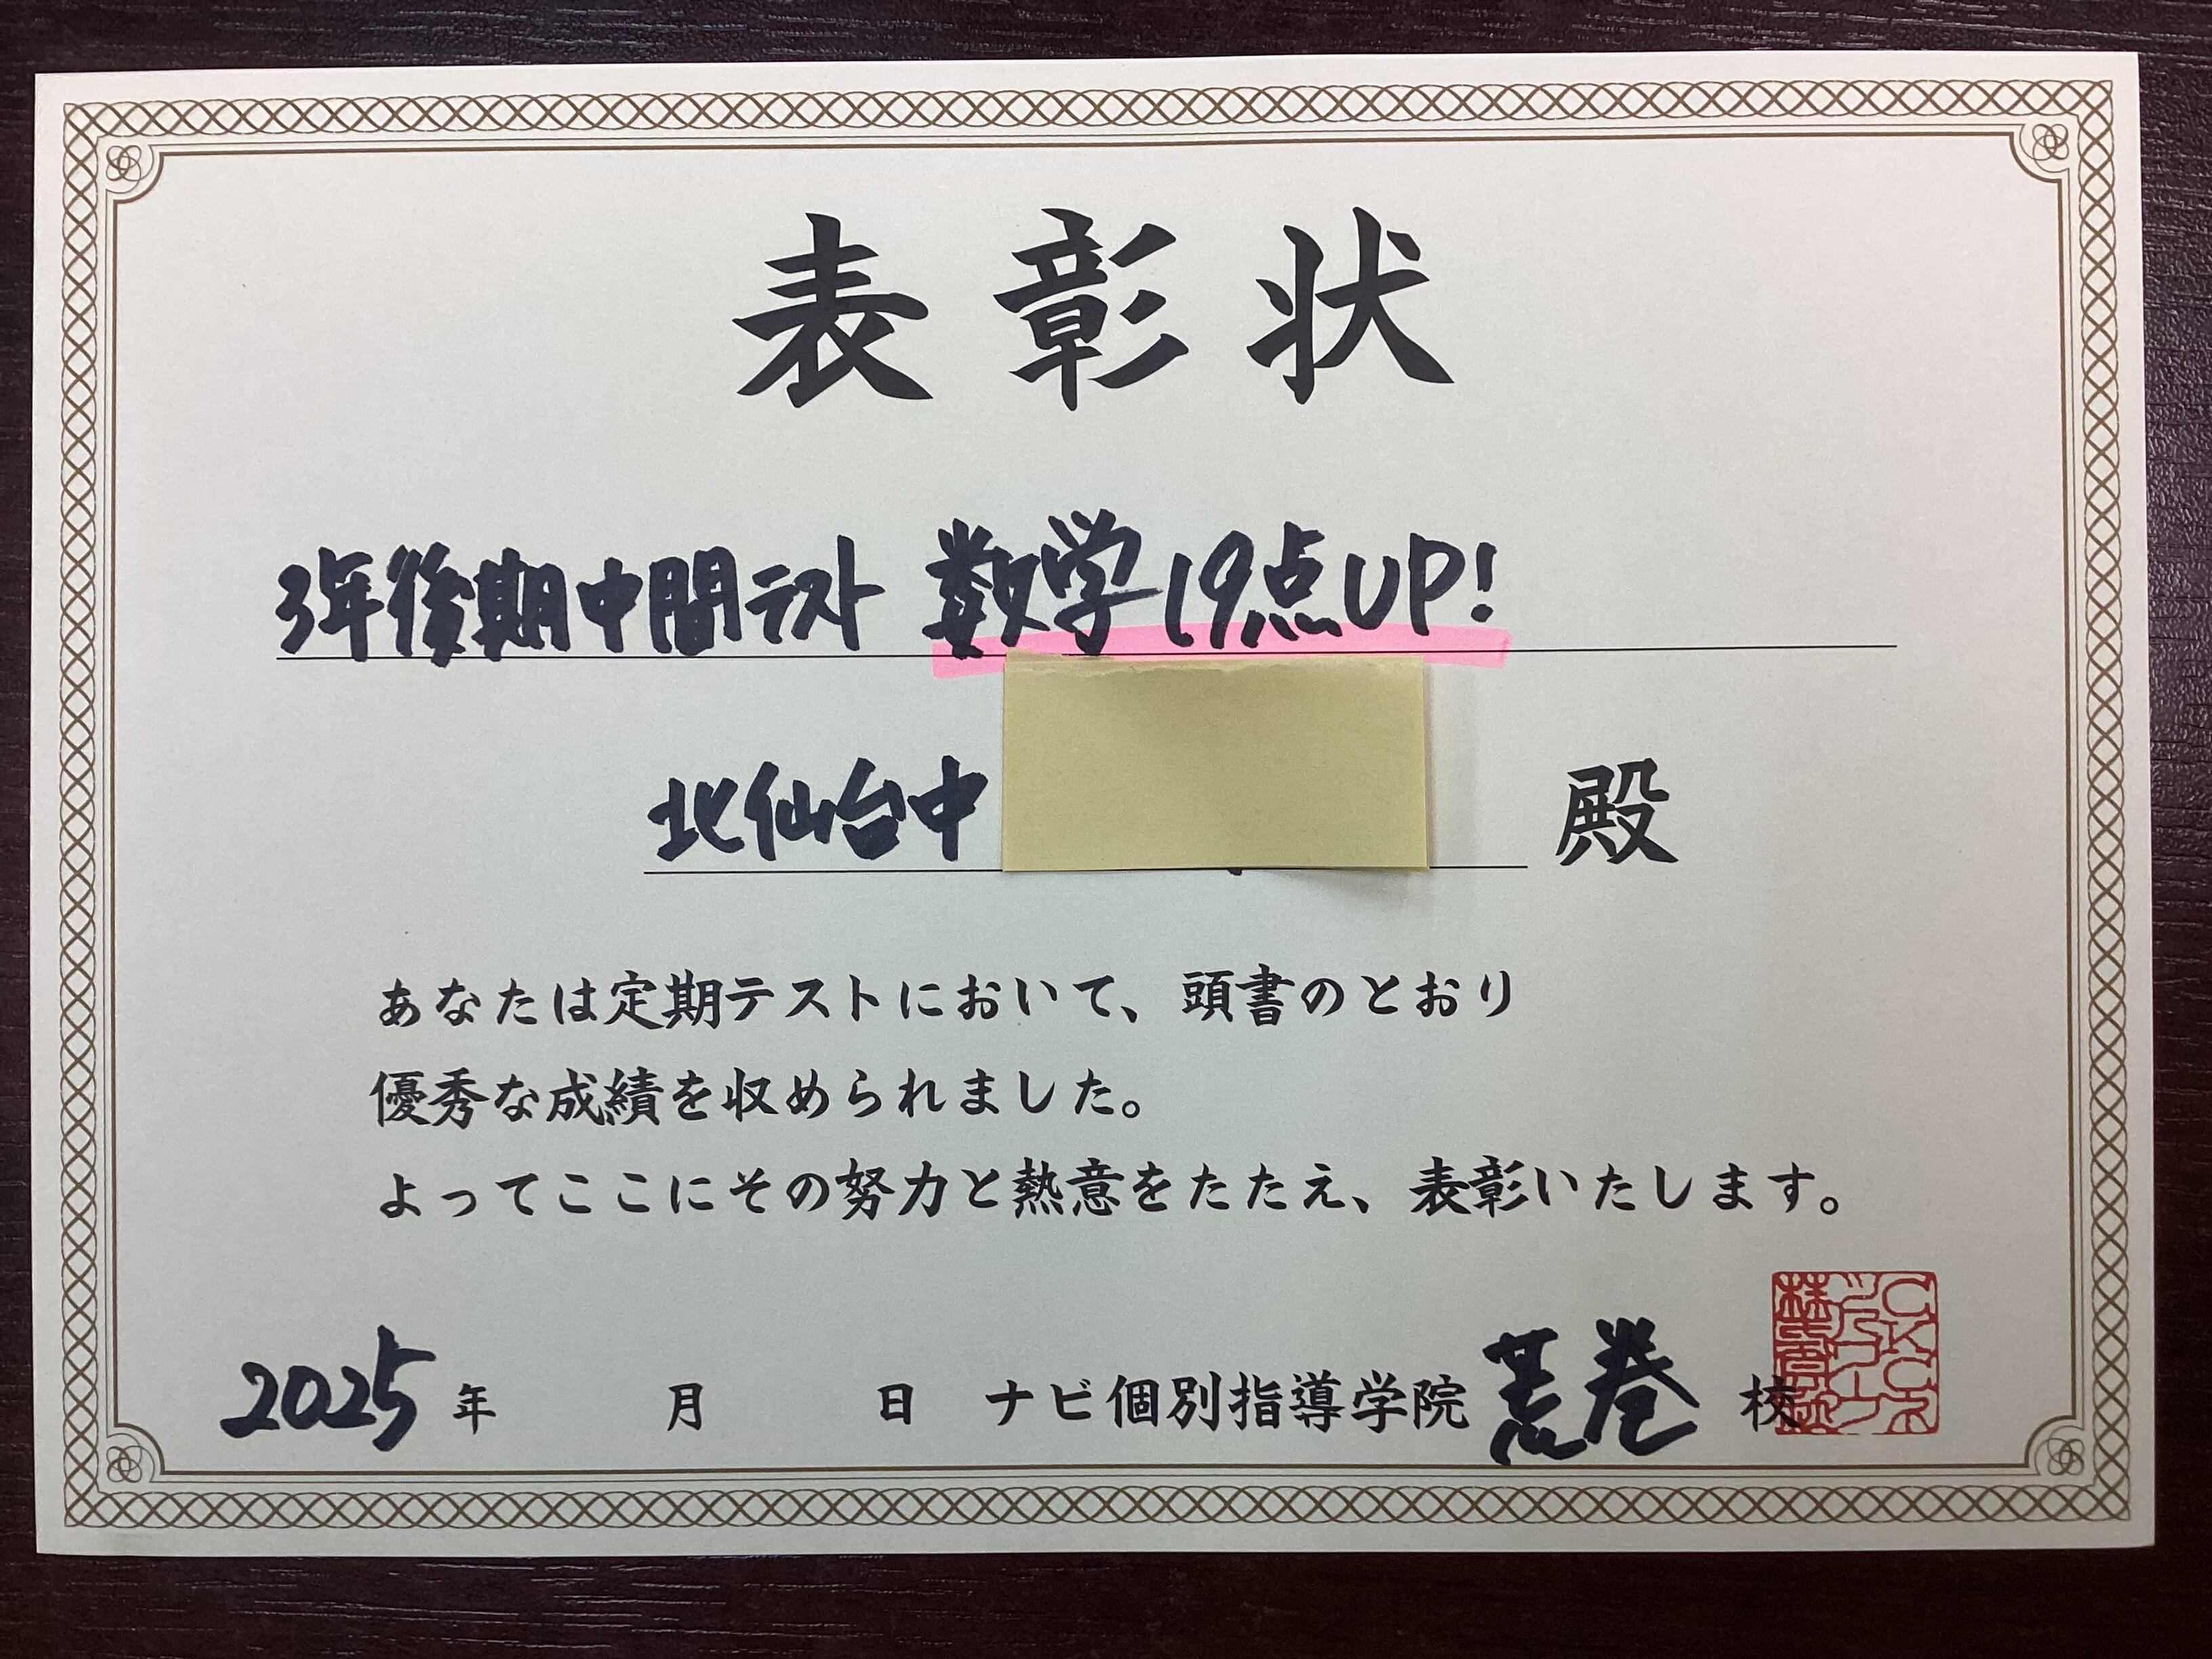 表彰状
3年後期中間テスト 数学19点UP!
北仙台中 殿
あなたは定期テストにおいて、頭書のとおり
優秀な成績を収められました。
よってここにその努力と熱意をたたえ、表彰いたします。
2025年 月 日 ナビ個別指導学院 荒巻 校